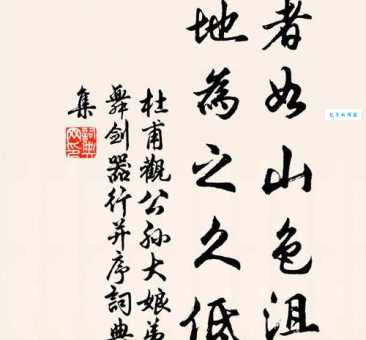 者如山色沮
地為之久低
杜甫觀公孫大娘弟
舞劍器行并序詞典
集